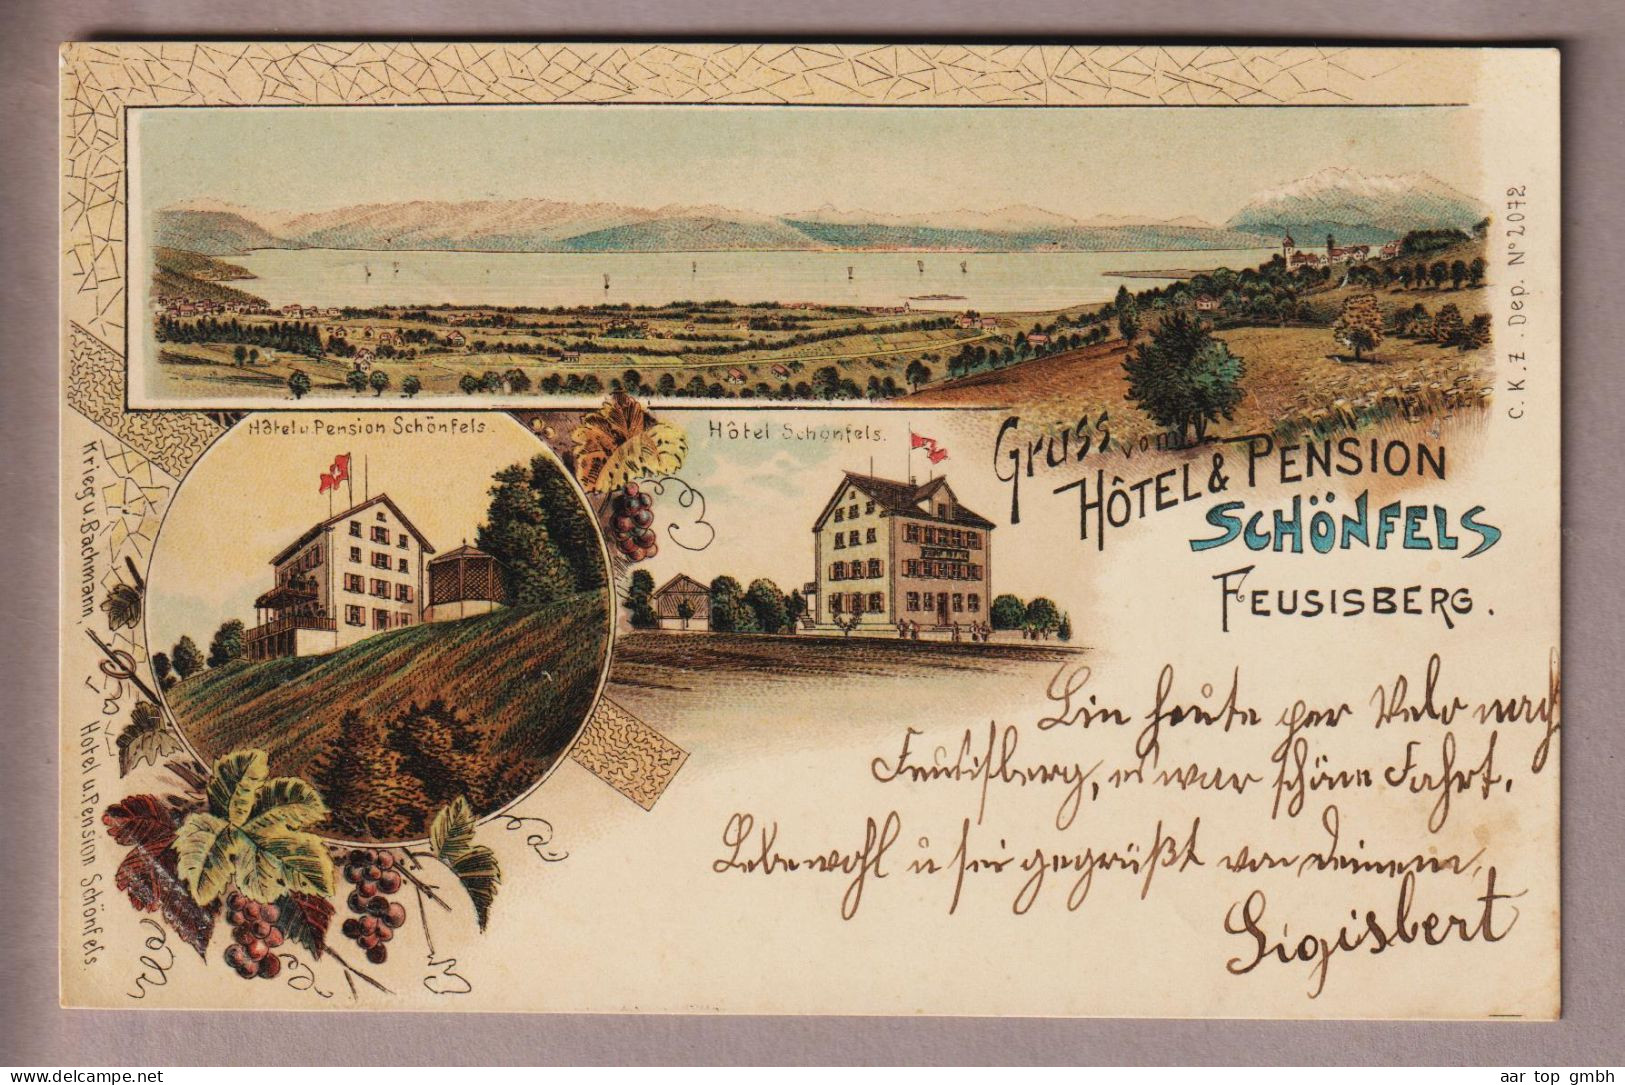 C. K. Z. Dep. Nº 2072
Hôtel u. Pension Schönfels.
Hôtel Schönfels.
Gruss vom
HÔTEL & PENSION
SCHÖNFELS
FEUSISBERG.
Krieg u. Bachmann, Hotel u. Pension Schönfels.
Bin heute per Velo nach
Feusisberg, es war schöne Fahrt.
Lebewohl u sei gegrüßt von Deinem
Sigisbert
aar top gmbh
delcampe.net